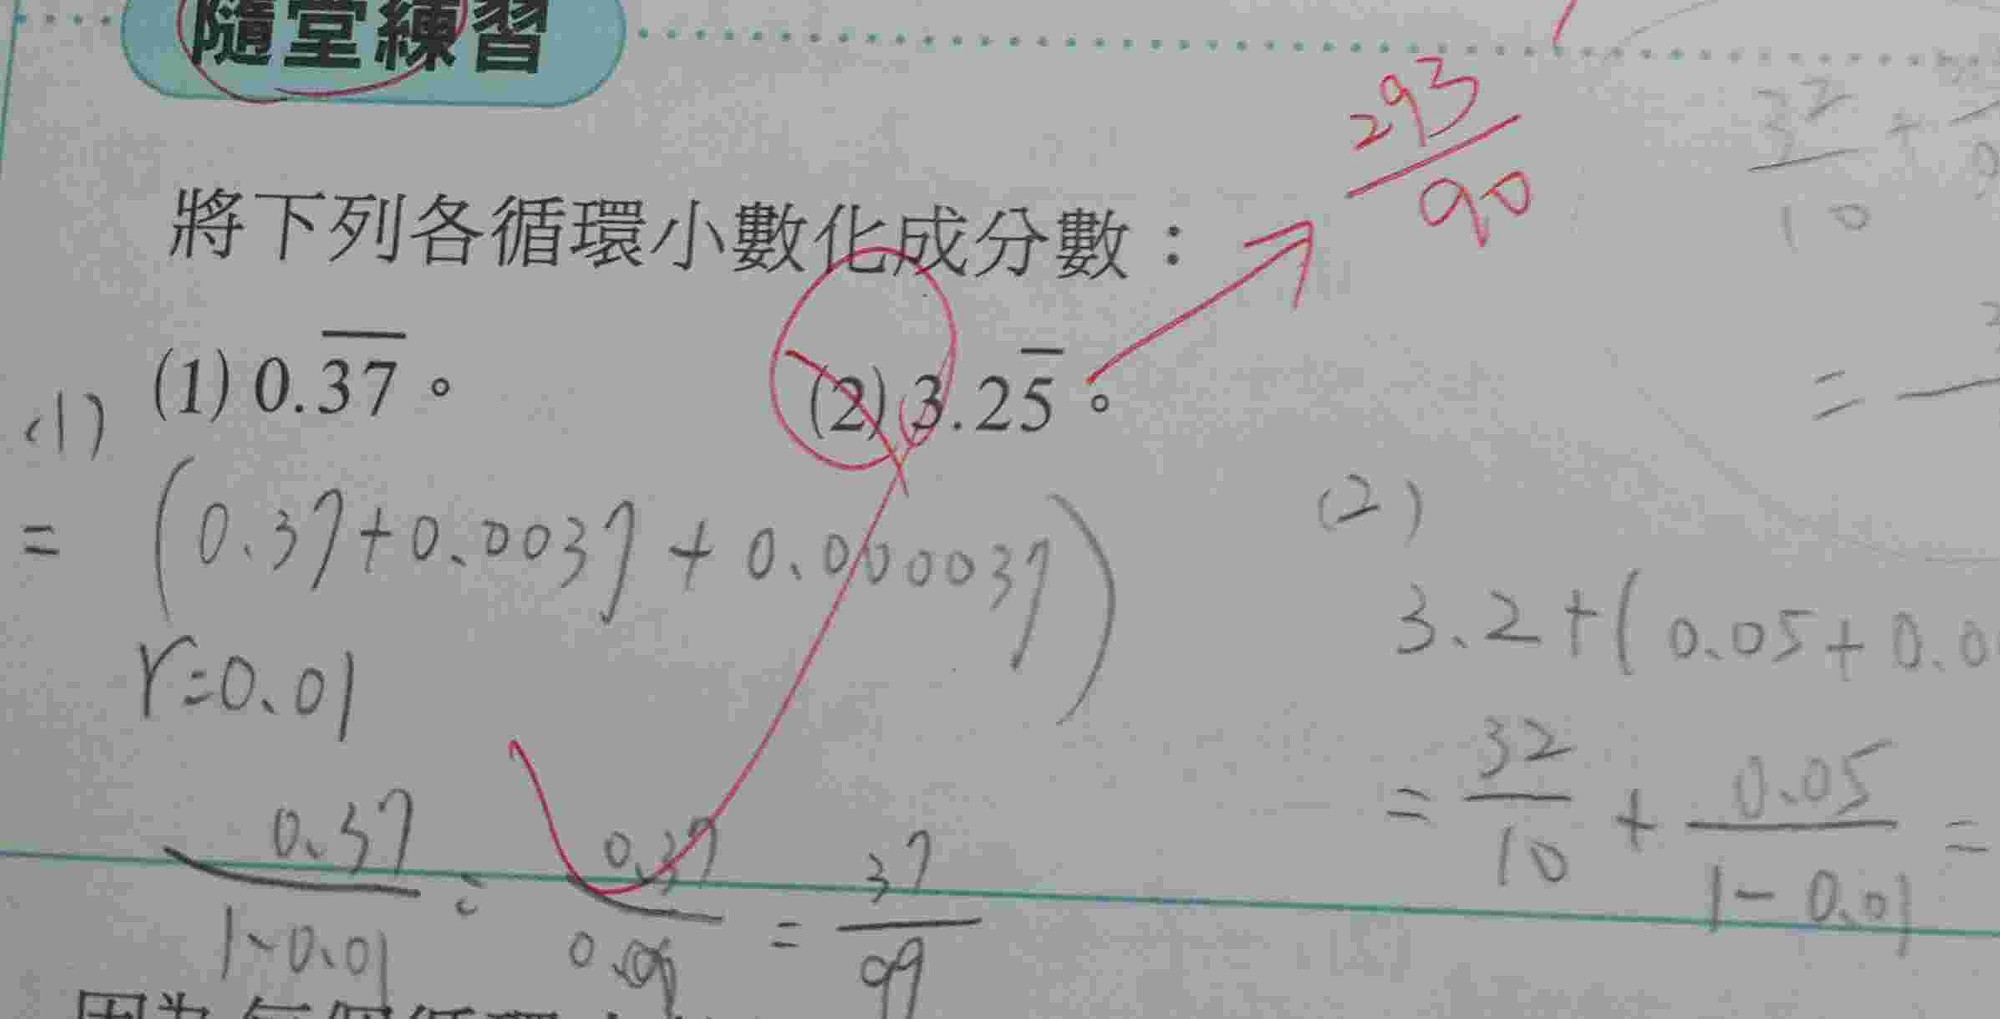 隨堂練習
293/90
32/10 +
將下列各循環小數化成分數：
=
(1) 0.\overline{37}。 (2) 3.2\overline{5}。
(1)
= (0.37+0.0037+0.000037)
r=0.01
0.37/1-0.01 = 0.37/0.99 = 37/99
(2)
3.2+(0.05+0.0
= 32/10 + 0.05/1-0.01 =